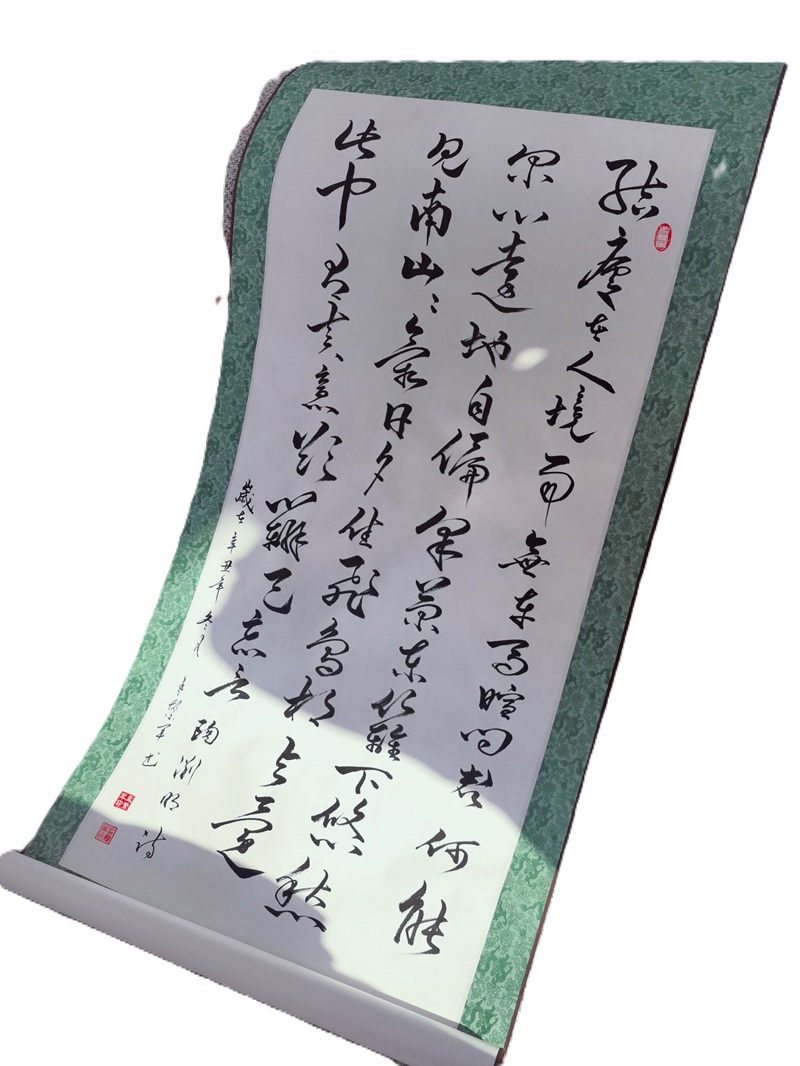 結廬在人境而無車馬喧問君何能
爾心遠地自偏采菊東籬下悠然
見南山〻氣日夕佳飛鳥相與還
此中有真意欲辨已忘言 陶淵明詩
歲在辛丑年冬月 書